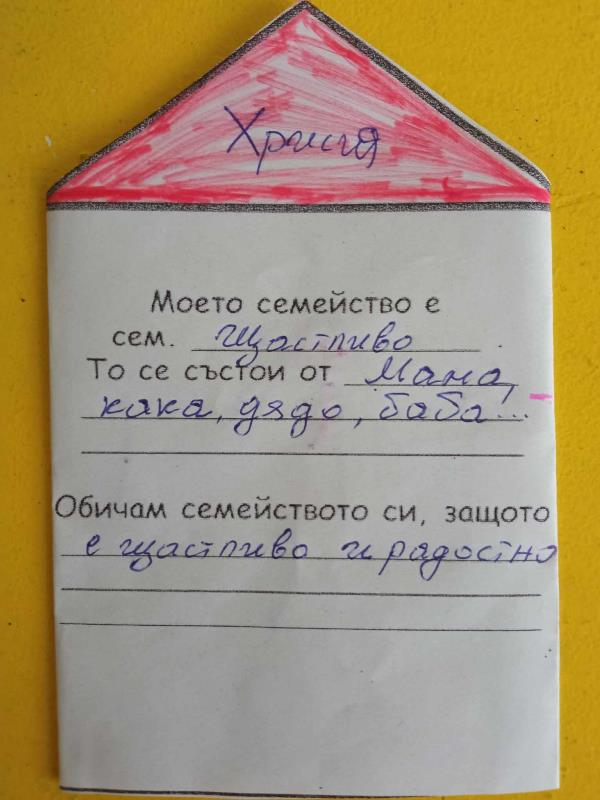 Христя
Моето семейство е
сем. Щастливо
То се състои от Мама,
кака, дядо, баба...
Обичам семейството си, защото
е щастливо и радостно